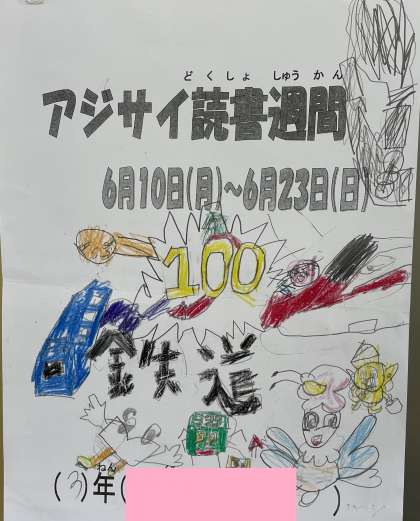 どくしょ しゅうかん
アジサイ読書週間
6月10日(月)～6月23日(日)
100
鉄道
ねん
(3)年( )